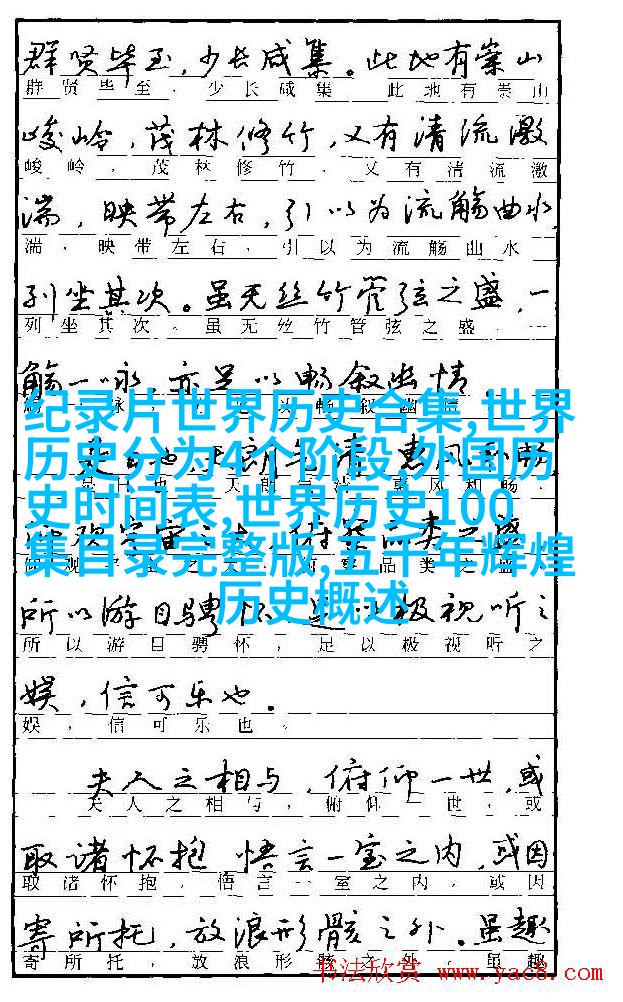 群贤毕至，少长咸集。此地有崇山
群贤毕至，少长咸集 此地有崇山
峻岭，茂林修竹，又有清流激
峻岭，茂林修竹，又有清流激
湍，映带左右，引以为流觞曲水
湍，映带左右，引以为流觞曲水
列坐其次。虽无丝竹管弦之盛，一
列坐其次。虽无丝竹管弦之盛，一
觞一咏，亦足以畅叙幽情。
纪录片世界历史合集,世界
历史分为4个阶段,外国历
史时间表,世界历史100
集目录完整版,五千年辉煌
历史概述
所以游目骋怀 足以极视听之
所以游目骋怀，足以极视听之
娱，信可乐也。
娱，信可乐也。
夫人之相与，俯仰一世，或
夫人之相与，俯仰一世，或
取诸怀抱 悟言一室之内，或因
取诸怀抱，悟言一室之内，或因
寄所托，放浪形骸之外。虽趣
寄所托，放浪形骸之外。虽趣
书法欣赏 www.yac8.com